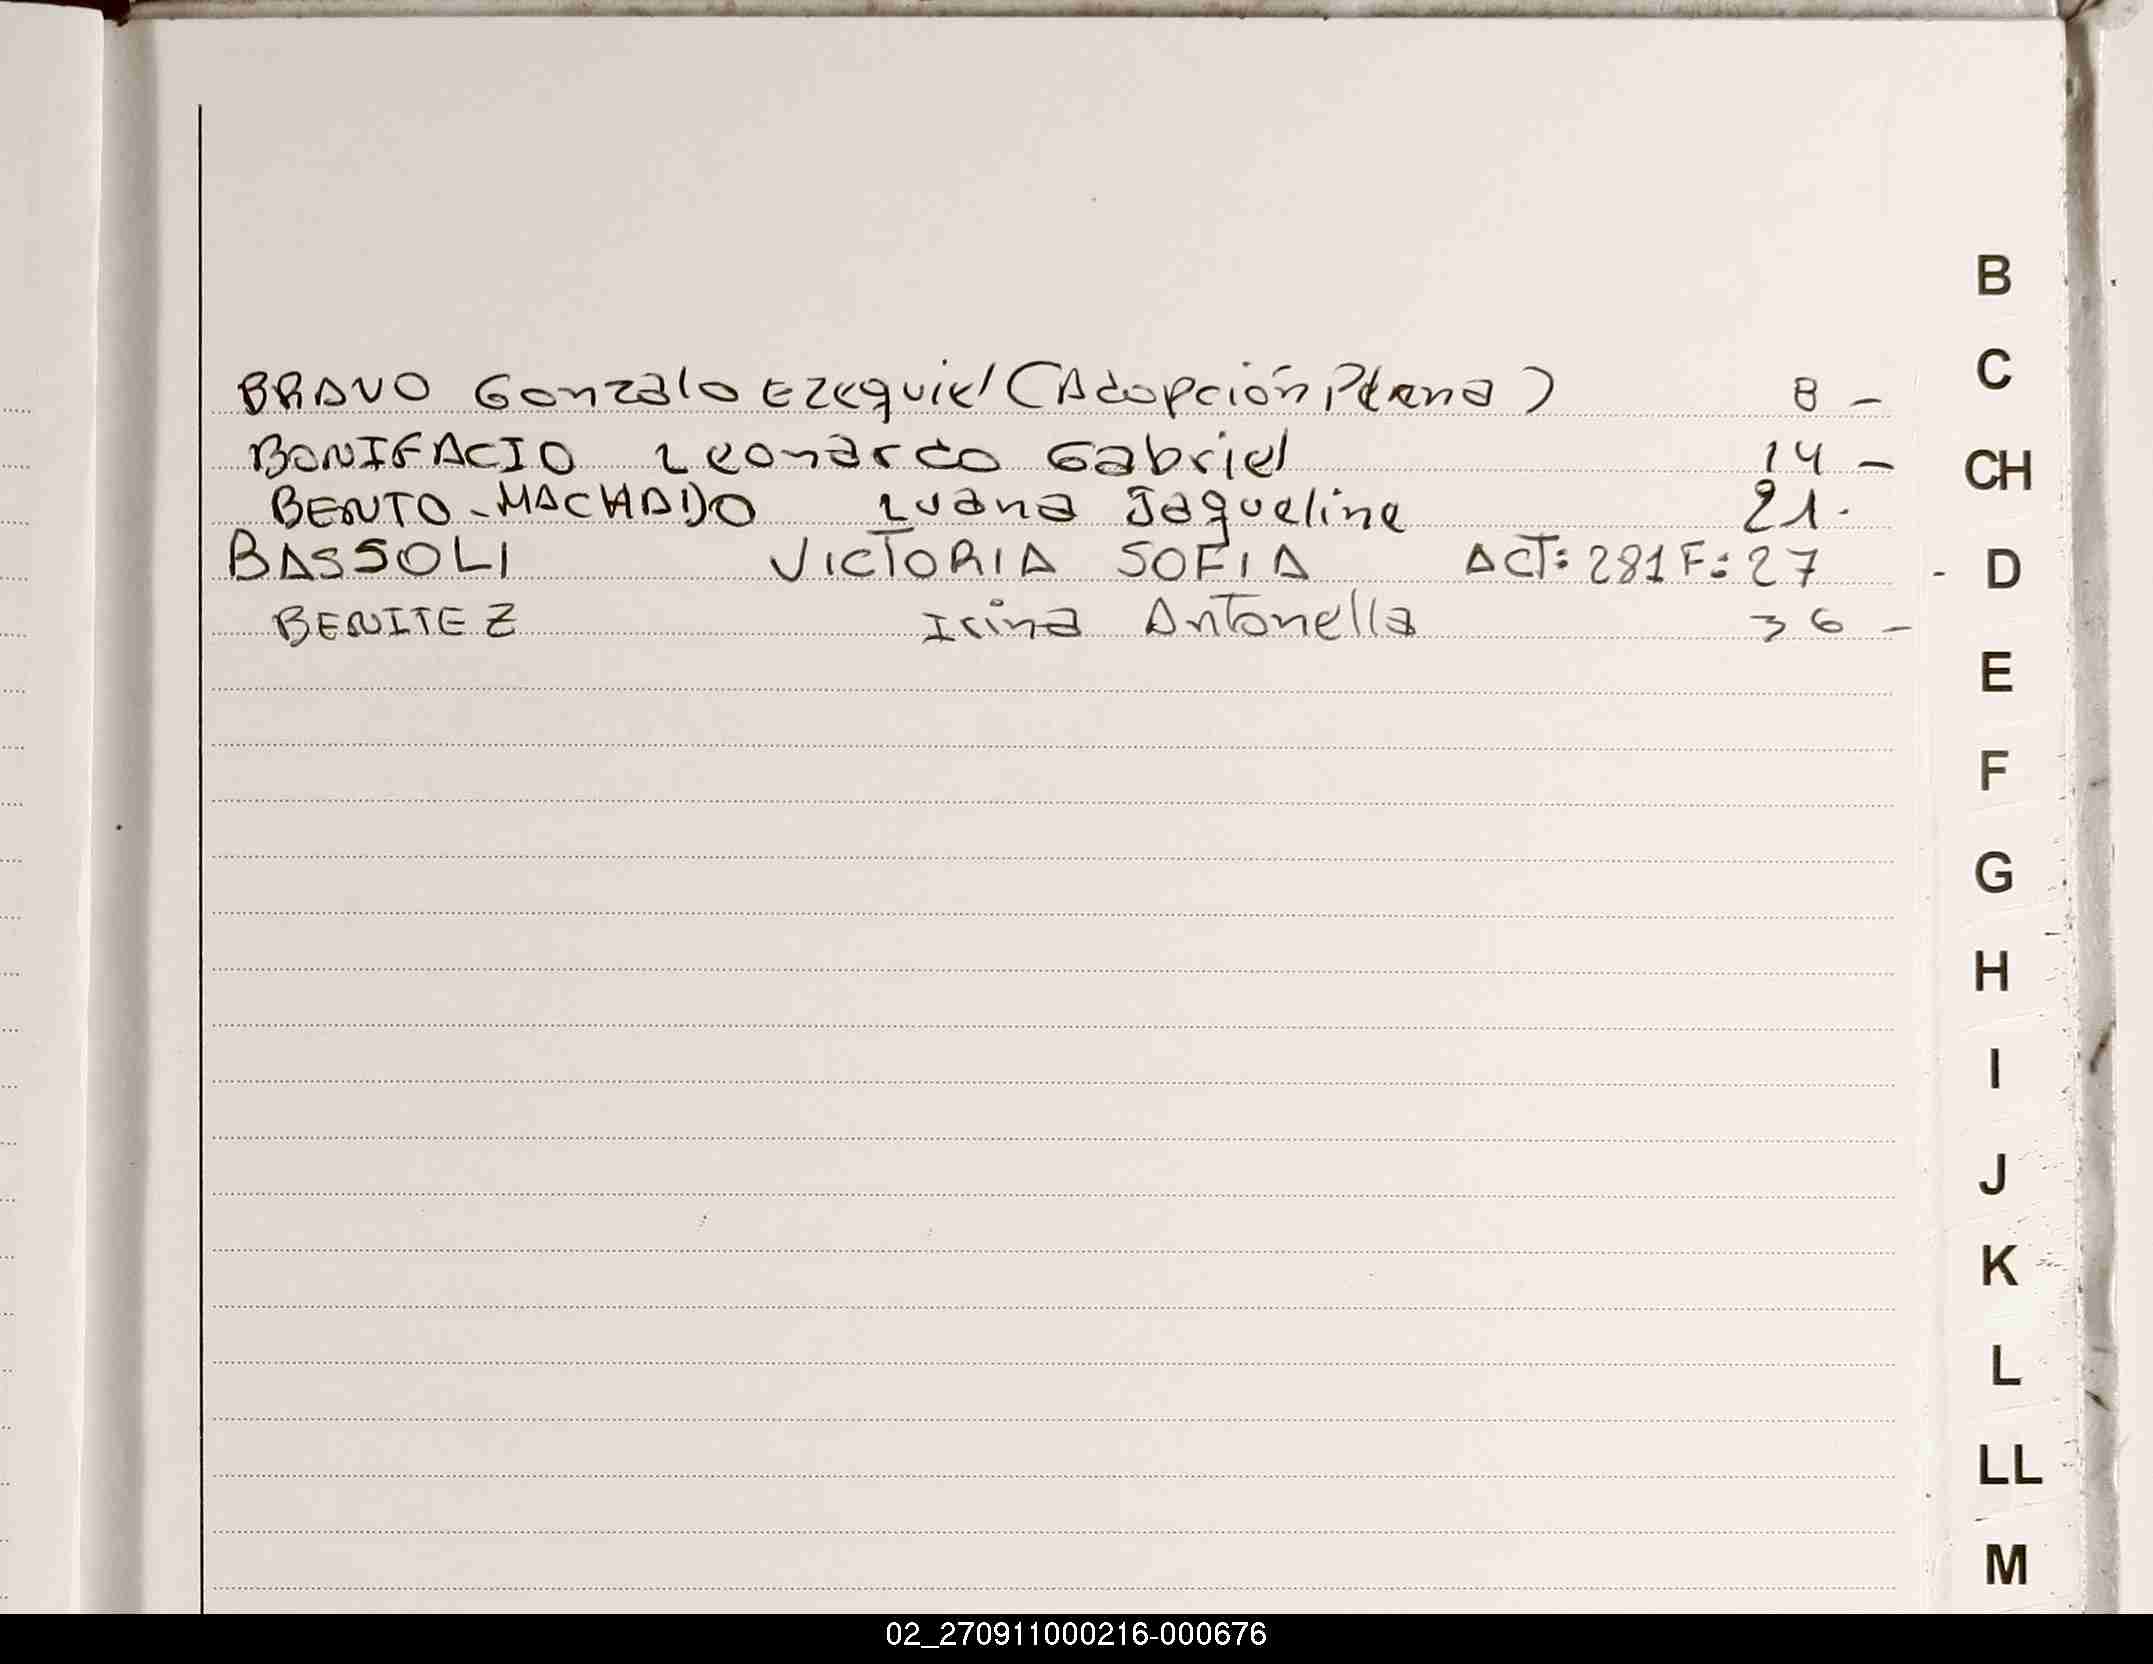 BRAVO Gonzalo Ezequiel (Adopción Plena) 8 -
BONIFACIO Leonardo Gabriel 14 -
BENTO-MACHADO Luana Jaqueline 21.
BASSOLI VICTORIA SOFIA ACT: 281 F: 27
BENITEZ Irina Antonella 36 -
B
C
CH
- D
E
F
G
H
I
J
K
L
LL
M
02_270911000216-000676